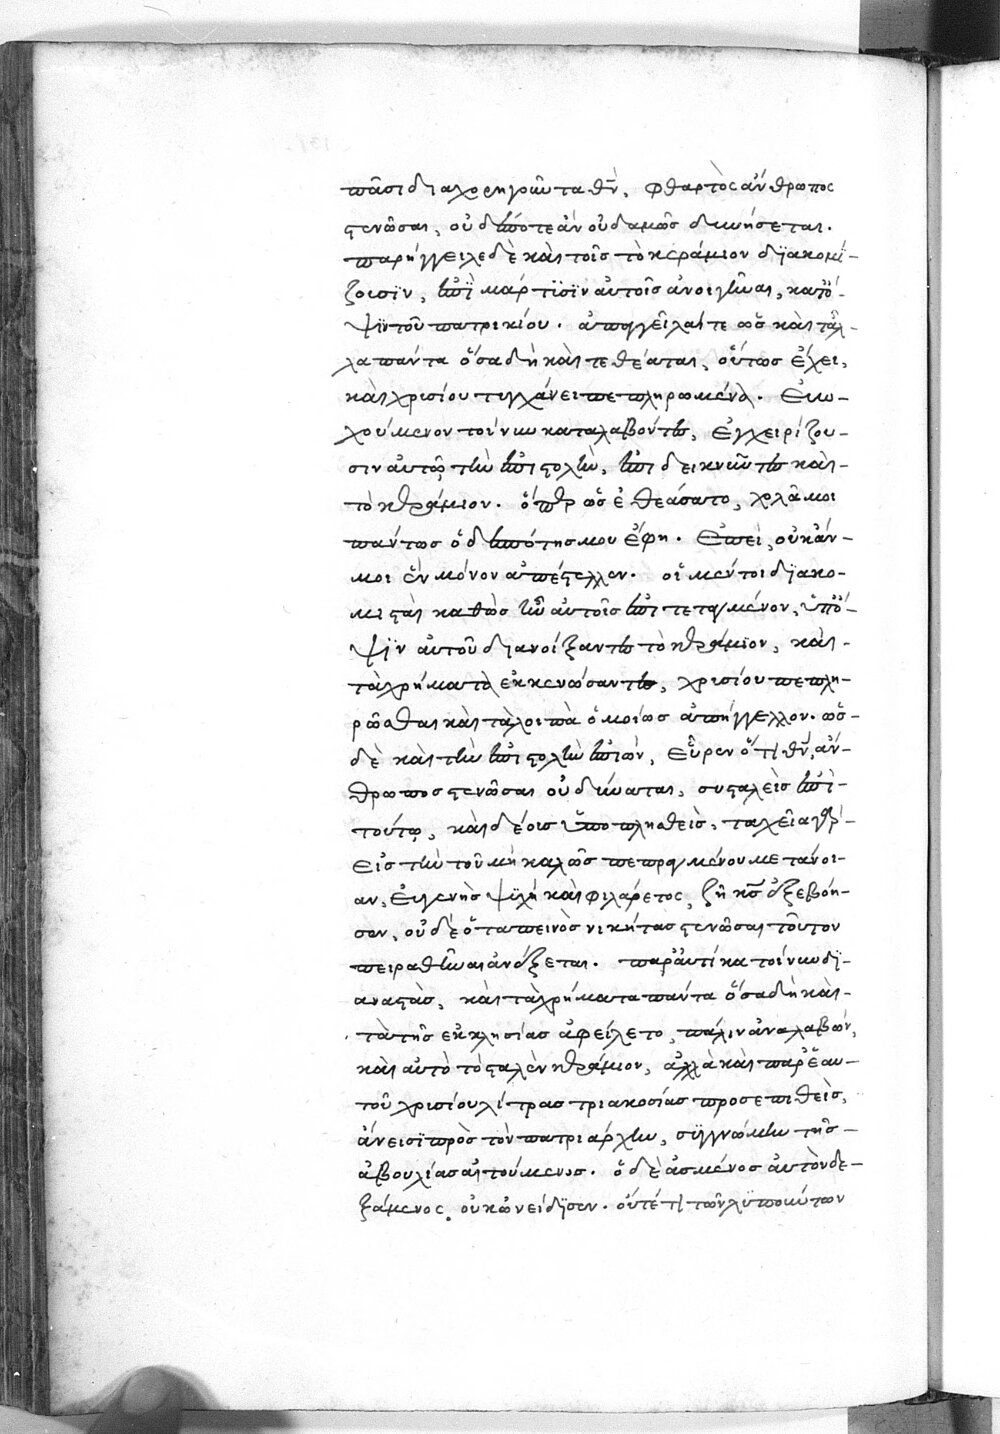 πᾶσι διαχορηγοῦντα θν̄, φθαρτὸς ἄνθρωπος
στενῶσαι, οὐδέποτε ἂν οὐδαμῶς δυνήσεται.
παρήγγειλε δὲ καὶ τοῖς τὸ κεράμιον διακομί-
ζουσϊν, ἐπὶ μάρτϋσϊν αὐτοῖς ἀνοιγῆναι, κατό-
ψϊν τοῦ πατρικίου. ἀπαγγεῖλαί τε ὡς καὶ τἆλ-
λα πάντα ὅσα δὴ καὶ τεθέαται, οὕτως ἔχει,
καὶ χρυσίου τυγχάνει πεπληρωμένα. Εὐω-
χούμενον τοίνυν καταλαβόντες, ἐγχειρίζου-
σιν αὐτῷ τὴν ἐπιστολὴν, ἐπιδεικνῦντες καὶ
τὸ κεράμιον. ὅπερ ὡς ἐθεάσατο, χολᾶ μοι
πάντως ὁ δεσπότης μου ἔφη. Ἐπεὶ, οὐκ ἄν
μοι ἓν μόνον ἀπέστελλεν. οἱ μέντοι διακο-
μισταὶ καθὼς ἦν αὐτοῖς ἐπιτεταγμένον, ὑπό-
ψϊν αὐτοῦ διανοίξαντες τὸ κεράμϊον, καὶ
τὰ χρήματα ἐκκενώσαντες, χρυσίου πεπλη-
ρῶσθαι καὶ τὰ λοιπὰ ὁμοίως ἀπήγγελλον. ὡς
δὲ καὶ τὴν ἐπιστολὴν ἐπιὼν, εὗρεν ὅτι θν̄, ἄν-
θρωπος στενῶσαι οὐ δύναται, συσταλεὶς ἐπὶ
τούτῳ, καὶ δέους ὑποπλησθεὶς, ταχεῖα γὰρ
εἰς τὴν τοῦ μὴ καλῶς πεπραγμένου μετάνοι-
αν, εὐγενὴς ψϋχὴ καὶ φιλάρετος, ζῆ κς̄ ἐξεβόη-
σεν, οὐδὲ ὁ ταπεινὸς νικήτας στενῶσαι τοῦτον
πειραθῆναι ἀνέξεται. παραυτίκα τοίνυν δϊ-
αναστὰς, καὶ τὰ χρήματα πάντα ὅσα δὴ καὶ
τὰ τῆς ἐκκλησίας ἀφείλετο, πάλιν ἀναλαβὼν,
καὶ αὐτὸ τὸ σταλὲν κεράμιον, ἀλλὰ καὶ παρ' ἑαυ-
τοῦ χρυσίου λίτρας τριακοσίας προσεπιθεὶς,
ἄνεισϊ πρὸς τὸν πατριάρχην, συγγνώμην τῆς
ἀβουλίας αἰτούμενος. ὁ δὲ ἀσμένως αὐτὸν δε-
ξάμενος, οὐκ ὠνείδϊσεν. οὔτέ τι τῶν λϋπούντων